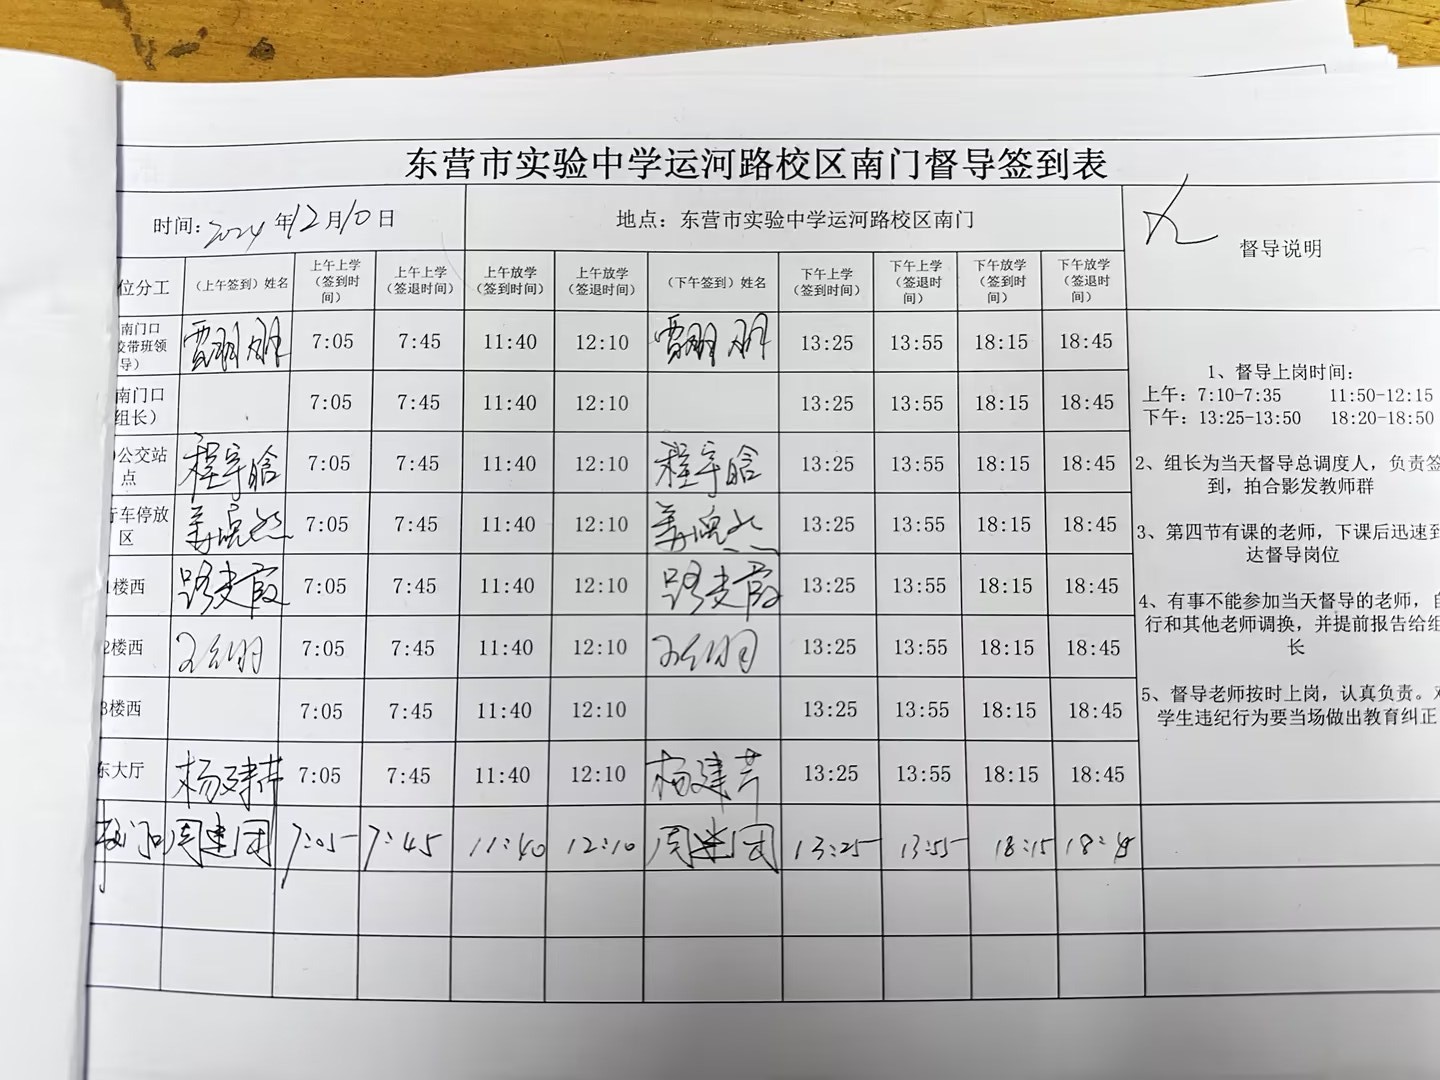 东营市实验中学运河路校区南门督导签到表
时间：2024年12月10日 地点：东营市实验中学运河路校区南门 督导说明
位分工 （上午签到）姓名 上午上学（签到时间） 上午上学（签退时间） 上午放学（签到时间） 上午放学（签退时间） （下午签到）姓名 下午上学（签到时间） 下午上学（签退时间） 下午放学（签到时间） 下午放学（签退时间）
南门口 带班领导） 7:05 7:45 11:40 12:10 13:25 13:55 18:15 18:45
南门口 组长） 7:05 7:45 11:40 12:10 13:25 13:55 18:15 18:45
公交站点 程宇晗 7:05 7:45 11:40 12:10 程宇晗 13:25 13:55 18:15 18:45
行车停放区 7:05 7:45 11:40 12:10 13:25 13:55 18:15 18:45
1楼西 路支霞 7:05 7:45 11:40 12:10 路支霞 13:25 13:55 18:15 18:45
2楼西 7:05 7:45 11:40 12:10 13:25 13:55 18:15 18:45
3楼西 7:05 7:45 11:40 12:10 13:25 13:55 18:15 18:45
东大厅 杨建芹 7:05 7:45 11:40 12:10 杨建芹 13:25 13:55 18:15 18:45
校门口 周建团 7:05 7:45 11:40 12:10 周建团 13:25 13:55 18:15 18:45
1、督导上岗时间：
上午：7:10-7:35 11:50-12:15
下午：13:25-13:50 18:20-18:50
2、组长为当天督导总调度人，负责签
到，拍合影发教师群
3、第四节有课的老师，下课后迅速到
达督导岗位
4、有事不能参加当天督导的老师，自
行和其他老师调换，并提前报告给组
长
5、督导老师按时上岗，认真负责。对
学生违纪行为要当场做出教育纠正